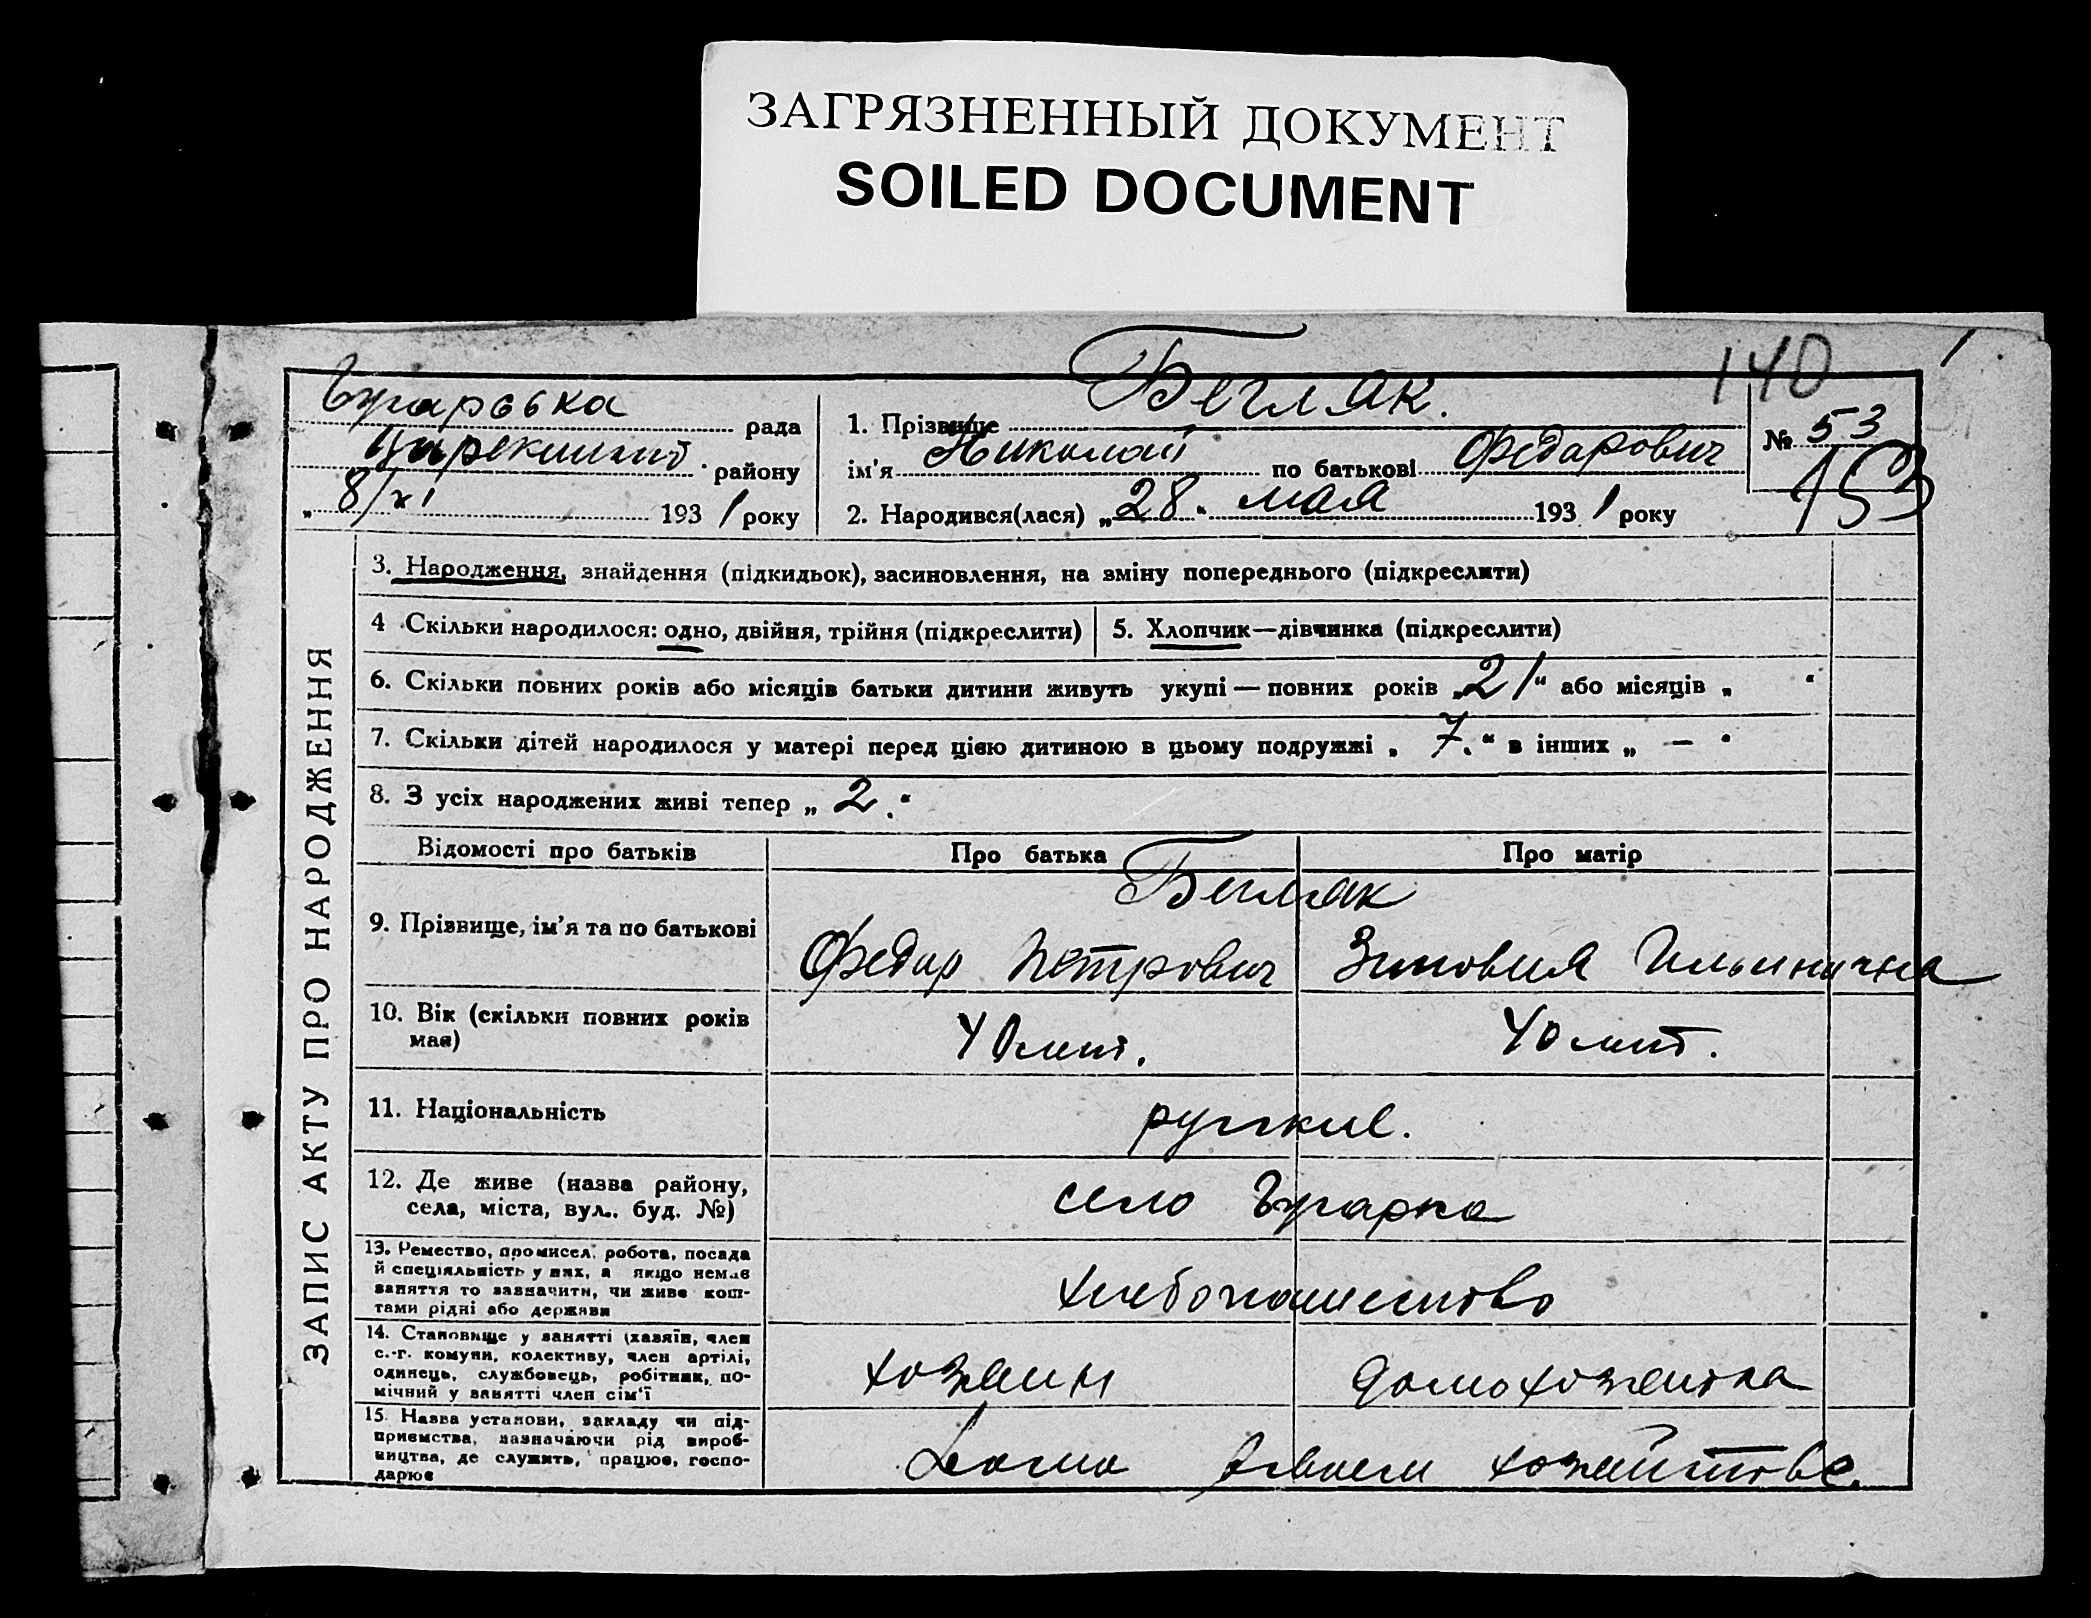 ЗАГРЯЗНЕННЫЙ ДОКУМЕНТ
SOILED DOCUMENT
140
рада
району
„8/XI 1931 року
1. Прізвище Бегляк.
ім'я Николай по батькові Федарович
2. Народився(лася) „28“ мая 1931 року
№ 53
153
ЗАПИС АКТУ ПРО НАРОДЖЕННЯ
3. Народження, знайдення (підкидьок), засиновлення, на зміну попереднього (підкреслити)
4 Скільки народилося: одно, двійня, трійня (підкреслити)
5. Хлопчик—дівчинка (підкреслити)
6. Скільки повних років або місяців батьки дитини живуть укупі — повних років „21“ або місяців „ “
7. Скільки дітей народилося у матері перед цією дитиною в цьому подружжі „7.“ в інших „ — “
8. З усіх народжених живі тепер „2.“
Відомості про батьків
Про батька
Про матір
9. Прізвище, ім'я та по батькові
Бегляк
Федар Петрович
Зиновия Ильинична
10. Вік (скільки повних років
має)
40 лит.
40 лит.
11. Національність
руские.
12. Де живе (назва району,
села, міста, вул.. буд. №)
село
13. Ремество, промисел, робота, посада
й спеціяльність у них, а якщо немає
заняття то зазначити, чи живе кош-
тами рідні або держави
хлебопашество
14. Становище у занятті (хазяїн, член
с.-г. комуни, колективу, член артілі,
одинець, службовець, робітник, по-
мічний у занятті член сім'ї
хозяин
домохозяйка
15. Назва установи, закладу чи під-
приємства, зазначаючи рід вироб-
ництва, де служить, працює, госпо-
дарює
Дома в своем хозяйстве.